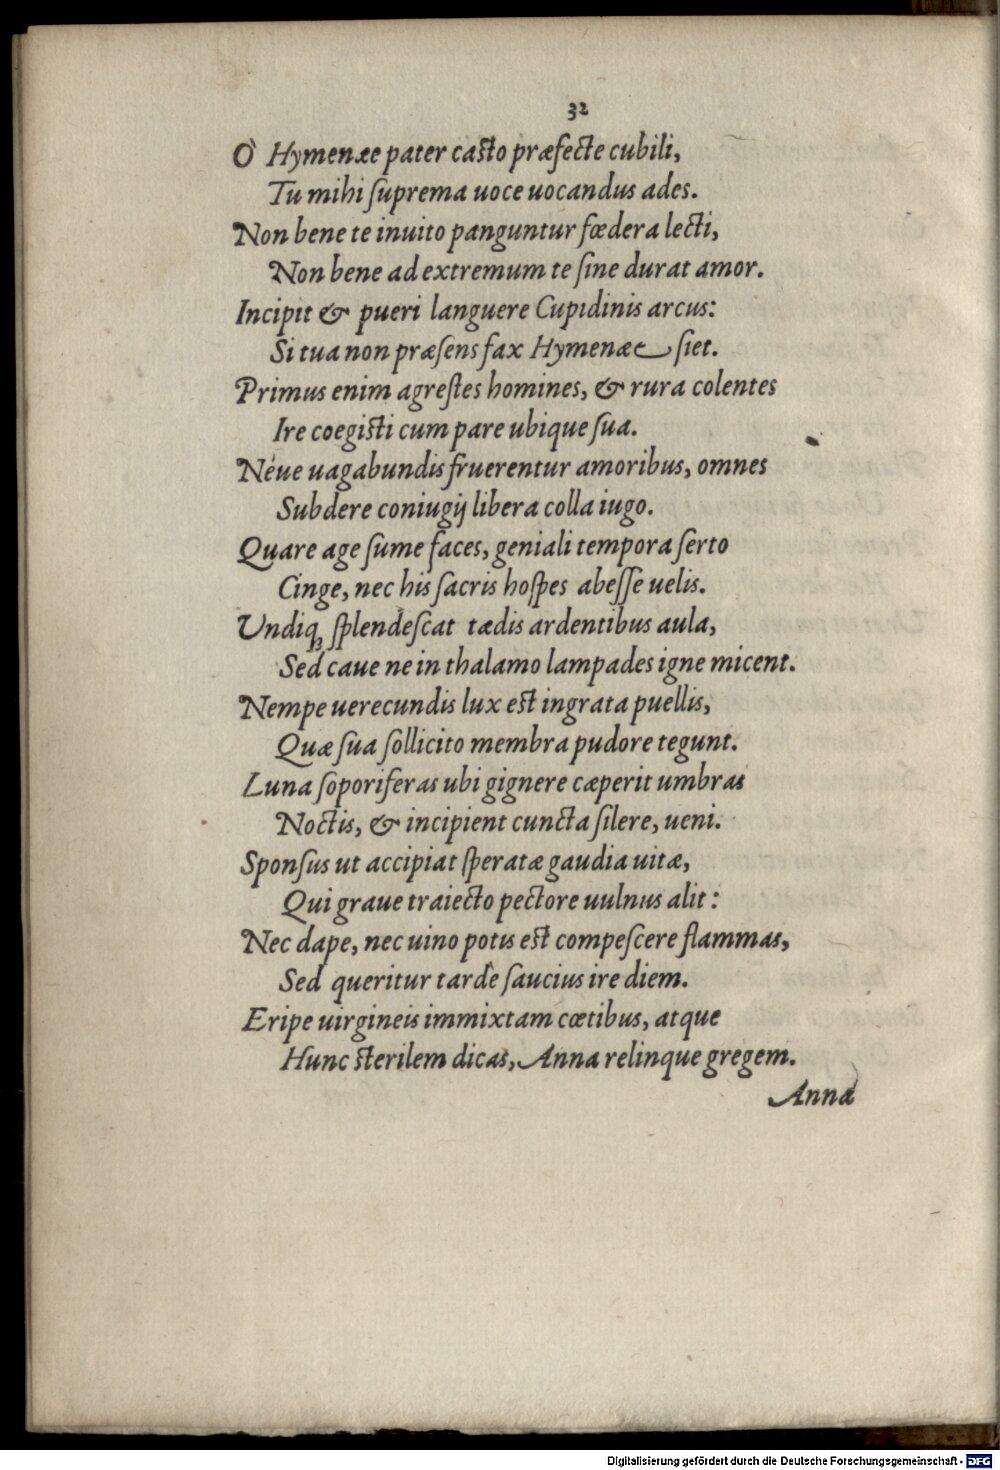 32
Ò Hymenæe pater casto præfecte cubili,
Tu mihi ſuprema uoce uocandus ades.
Non bene te inuito panguntur fœdera lecti,
Non bene ad extremum te ſine durat amor.
Incipit & pueri languere Cupidinis arcus:
Si tua non præſens fax Hymenæe ſiet.
Primus enim agreſtes homines, & rura colentes
Ire coegisti cum pare ubique ſua.
Néue uagabundis fruerentur amoribus, omnes
Subdere coniugij libera colla iugo.
Quare age ſume faces, geniali tempora ſerto
Cinge, nec his ſacris hoſpes abeſſe uelis.
Undiqꝫ ſplendeſcat tædis ardentibus aula,
Sed caue ne in thalamo lampades igne micent.
Nempe uerecundis lux est ingrata puellis,
Quæ ſua ſollicito membra pudore tegunt.
Luna ſoporiferas ubi gignere cæperit umbras
Noctis, & incipient cuncta ſilere, ueni.
Sponſus ut accipiat ſperatæ gaudia uitæ,
Qui graue traiecto pectore uulnus alit:
Nec dape, nec uino potis est compeſcere flammas,
Sed queritur tardè ſaucius ire diem.
Eripe uirgineis immixtam cœtibus, atque
Hunc sterilem dicas, Anna relinque gregem.
Anna
Digitalisierung gefördert durch die Deutsche Forschungsgemeinschaft - DFG